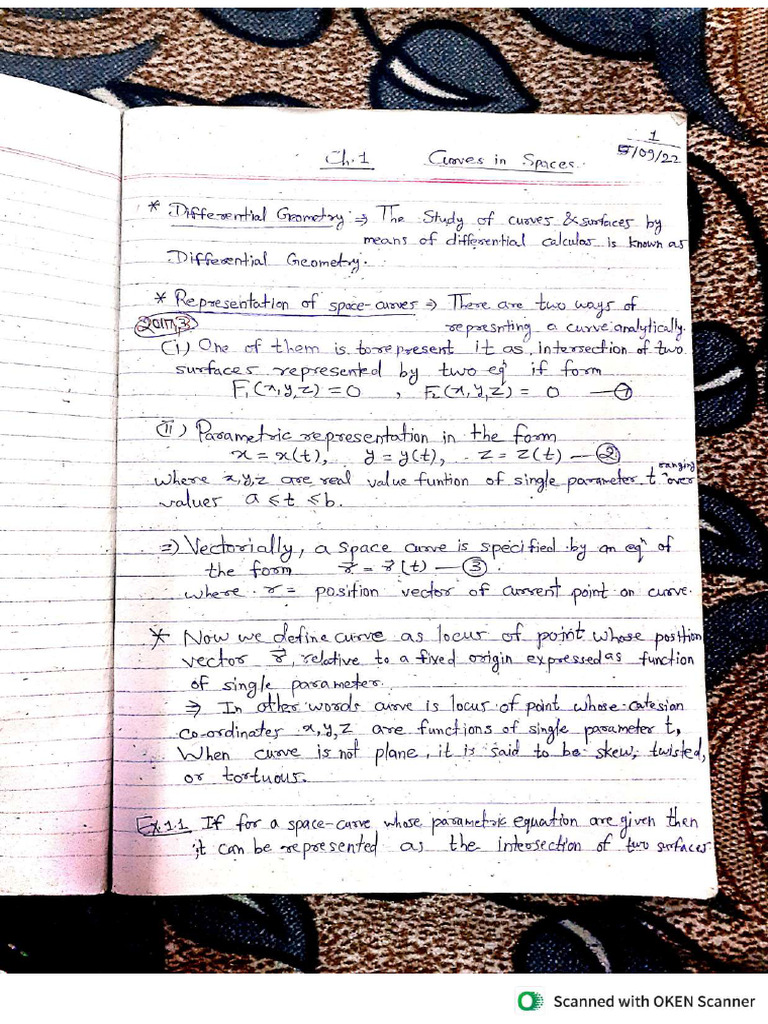 1
5/09/22
Ch.1 Curves in Spaces.
* Differential Geometry ⇒ The Study of curves & surfaces by
means of differential calculas is known as
Differential Geometry.
* Representation of space-curves ⇒ There are two ways of
represnting a curve analytically.
(i) One of them is to represent it as, intersection of two
surfaces represented by two eqn if form
F₁(x,y,z) = 0 , F₂(x,y,z) = 0 —①
(ii) Parametric representation in the form
x = x(t), y = y(t), z = z(t) —②
ranging
where x,y,z are real value funtion of single parameter t ^ over
values a ≤ t ≤ b.
⇒) Vectorially, a space curve is specified by an eqn of
the form r⃗ = r⃗(t) —③.
where r = position vector of current point on curve.
* Now we define curve as locus of point whose position
vector r⃗, relative to a fixed origin expressed as function
of single parameter.
⇒ In other words curve is locus of point whose catesian
co-ordinates x,y,z are functions of single parameter t,
When curve is not plane, it is said to be skew, twisted,
or tortuous.
Ex 1.1 If for a space-curve whose parametric equation are given then
it can be represented as the intersection of two surfaces
Scanned with OKEN Scanner